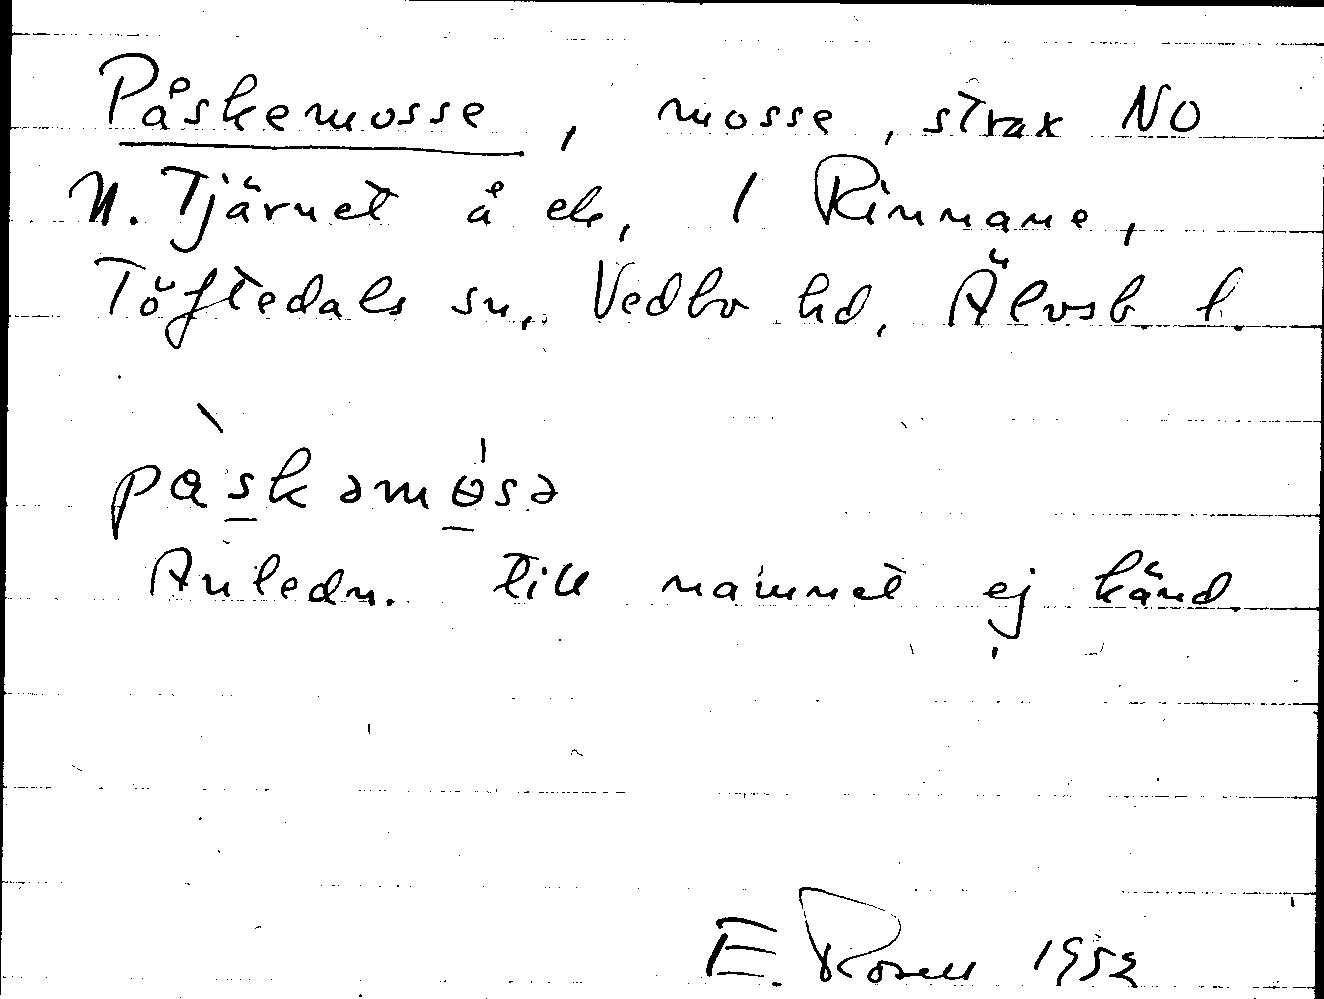 Påskemosse, mosse, strax NO
N. Tjärnet å ek, 1 Rinnane,
Töftedals sn, Vedbo hd, Älvsb. l.
pàskəmɵ́sə
Anledn. till namnet ej känd.
E. Rosell 1952